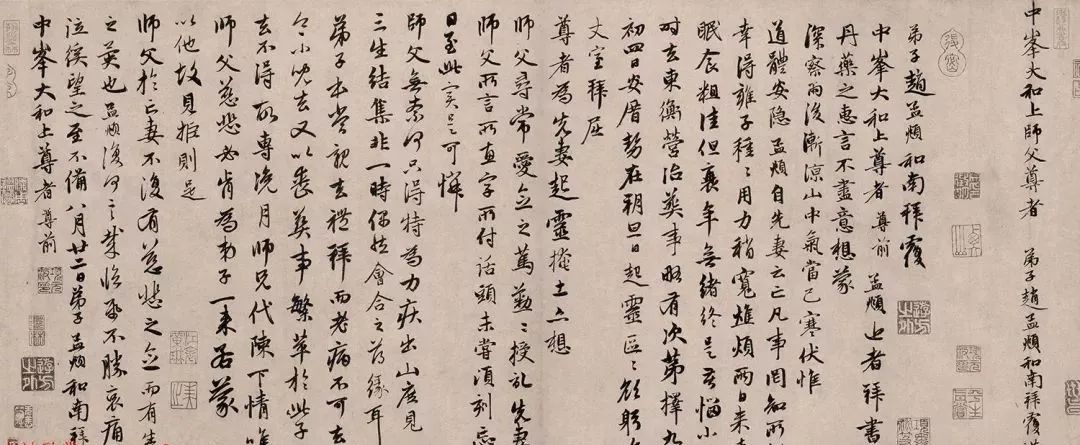 中峯大和上師父尊者 弟子趙孟頫和南拜覆
弟子趙孟頫和南拜覆
中峯大和上尊者尊前 孟頫上者拜書
丹藥之惠言不盡意想蒙
深察雨後漸凉山中氣當已寒伏惟
道體安隱孟頫自先妻云亡凡事罔知所
幸得雍子種種用力稍寬焦煩兩日来
眠食粗佳但衰年無緒終是苦惱小
时去東衡營治葬事略有次第擇九
初四日安厝勢在朔旦日起靈區區欲躬
丈室拜屈
尊者為先妻起靈掩土亦想
師父尋常愛念之篤懃懃授記先妻
師父所言所直字所付話頭未嘗頃刻忘
日至此實是可憐
師父無奈何只得特為力疾出山庶見
三生結集非一時偶然會合之前緣耳
弟子本當親去禮拜而老病不可去
令小兒去又以喪葬事繁萃於此子
去不得所專浼月師兄代陳下情唯
師父慈悲必肯為弟子一来若蒙
以他故見拒則是
師父於亡妻不復有慈悲之念而有生
之異也孟頫復何言哉臨紙不勝哀痛
泣俟望之至不備八月廿二日弟子孟頫和南拜
中峯大和上尊者尊前